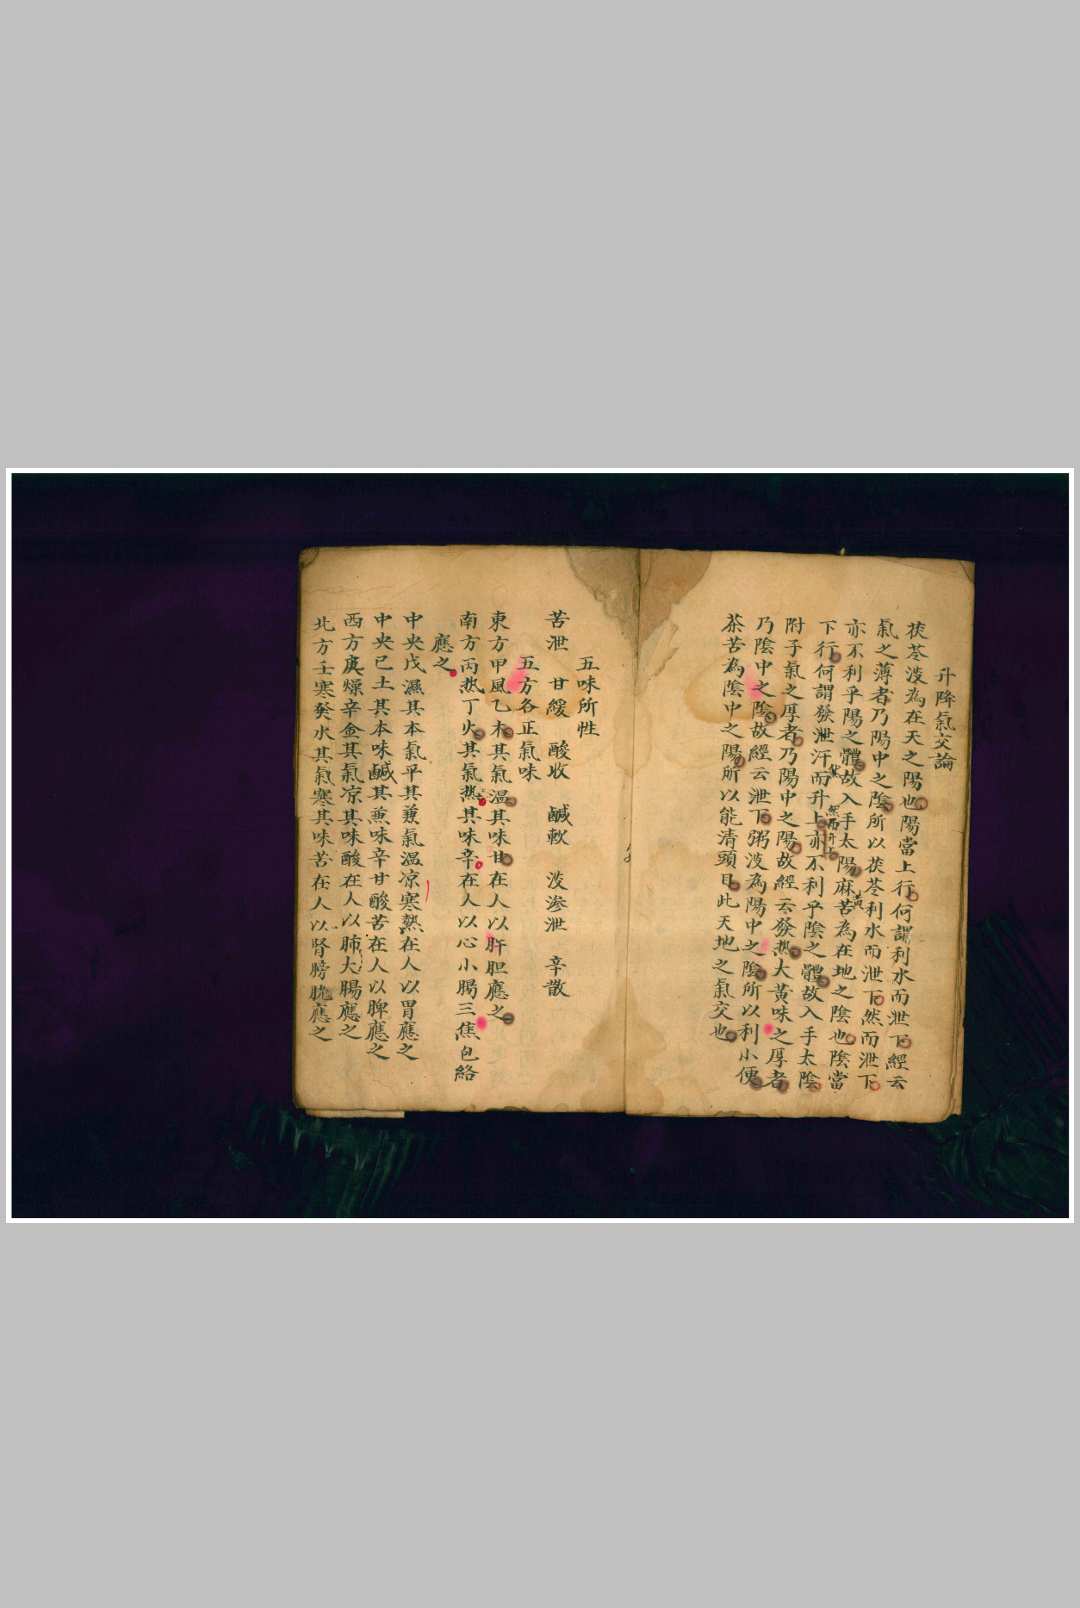 升降氣交論
茯苓淡為在天之陽也陽當上行何謂利水而泄下經云
氣之薄者乃陽中之陰所以茯苓利水而泄下然而泄下
亦不利乎陽之體故入手太陽麻黃苦為在地之陰也陰當
下行何謂發泄汗而升上然而升上亦不利乎陰之體故入手太陰
附子氣之厚者乃陽中之陽故經云發熱大黃味之厚者
乃陰中之陰故經云泄下粥淡為陽中之陰所以利小便
茶苦為陰中之陽所以能清頭目此天地之氣交也
五味所性
苦泄 甘緩 酸收 鹹軟 淡滲泄 辛散
五方各正氣味
東方甲風乙木其氣溫其味甘在人以肝胆應之
南方丙熱丁火其氣熱其味辛在人以心小腸三焦包絡
應之
中央戊濕其本氣平其兼氣溫凉寒熱在人以胃應之
中央己土其本味鹹其兼味辛甘酸苦在人以脾應之
西方庚燥辛金其氣凉其味酸在人以肺大腸應之
北方壬寒癸水其氣寒其味苦在人以腎膀胱應之